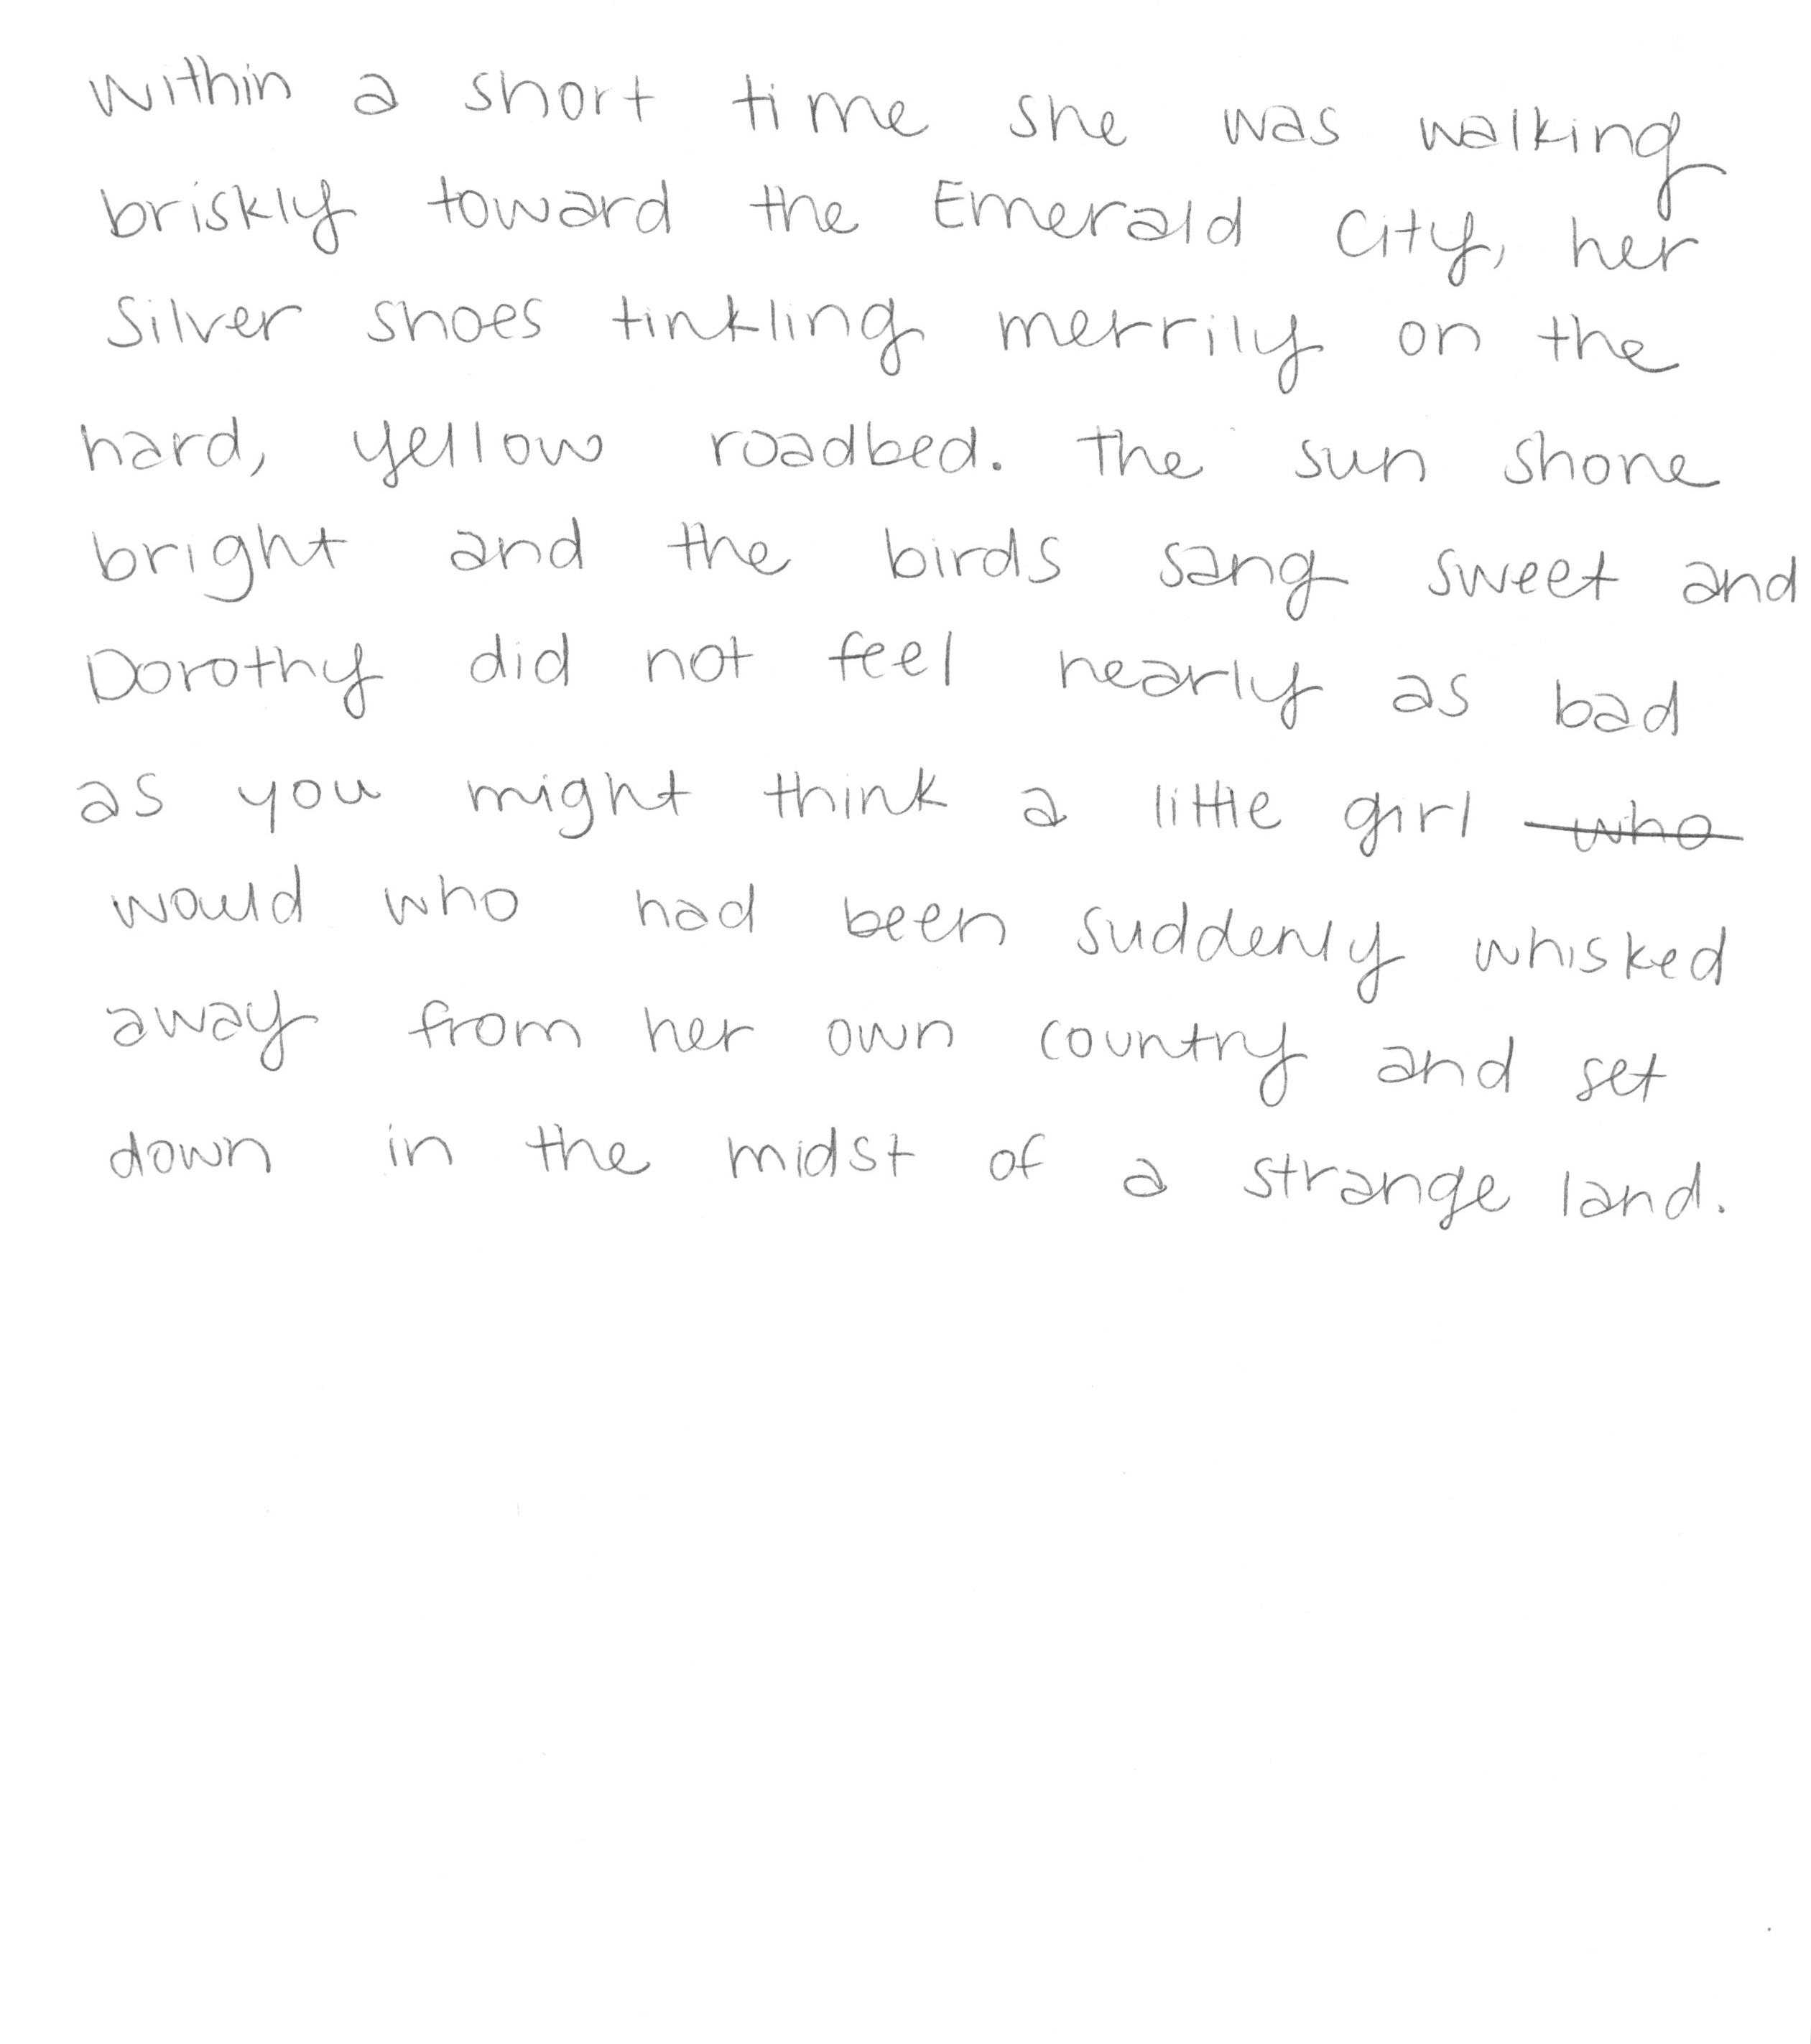 Within a short time she was walking
briskly toward the Emerald City, her
Silver shoes tinkling merrily on the
hard, yellow roadbed. The sun shone
bright and the birds sang sweet and
Dorothy did not feel nearly as bad
as you might think a little girl ~~who~~
would who had been suddenly whisked
away from her own country and set
down in the midst of a strange land.